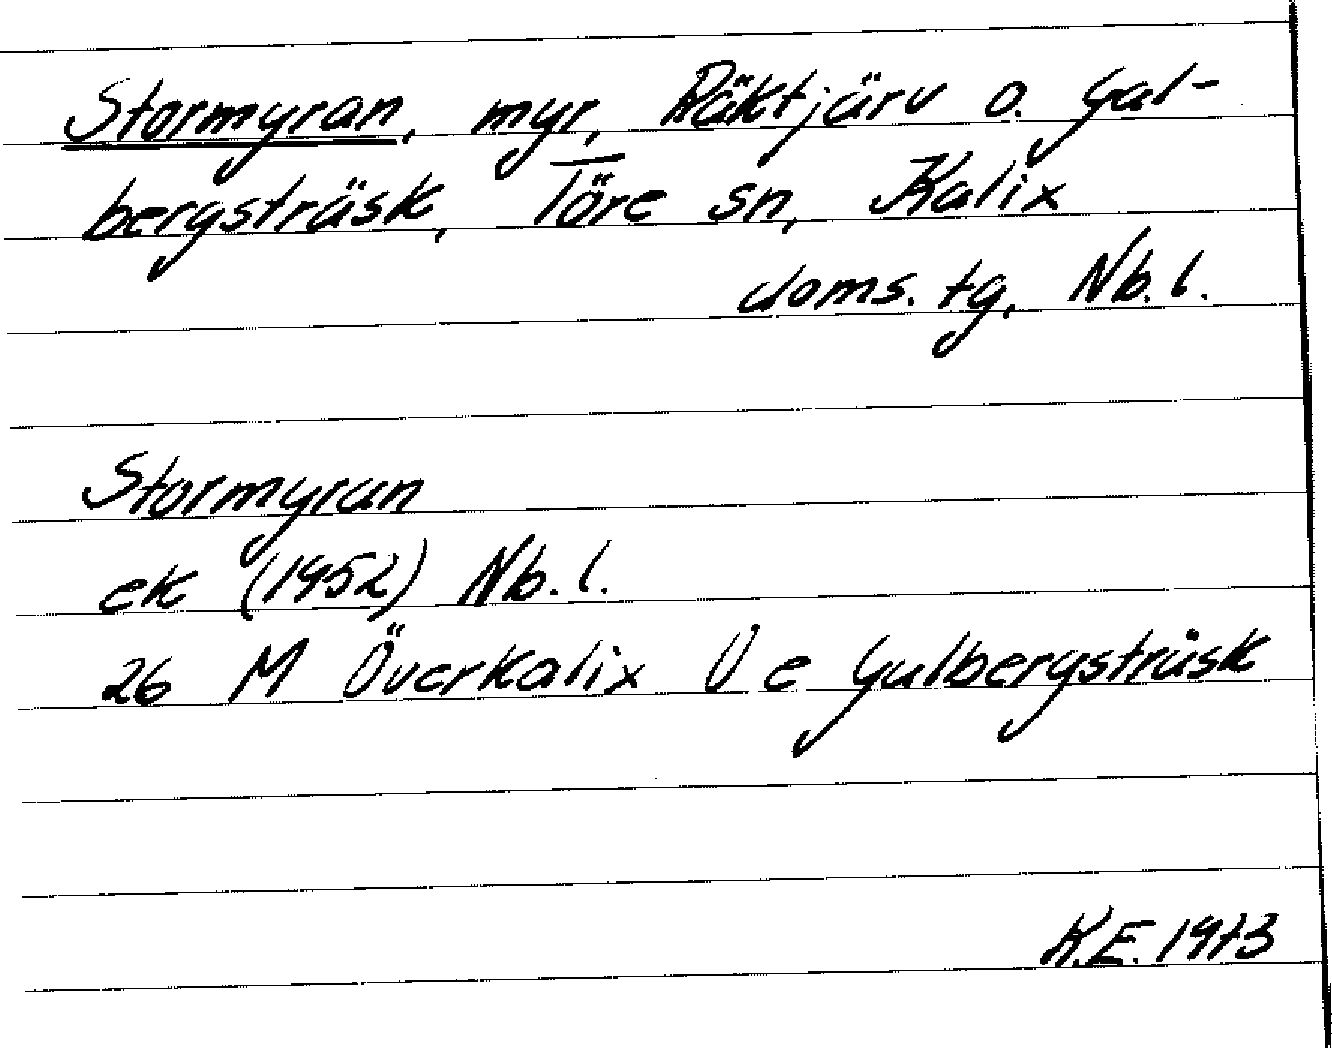 Stormyran, myr, Räktjärv o. Gal-
bergsträsk, Töre sn, Kalix
doms. tg, Nb. l.
Stormyran
ek (1952) Nb. l.
26 M Överkalix V e Galbergsträsk
K.E. 1973